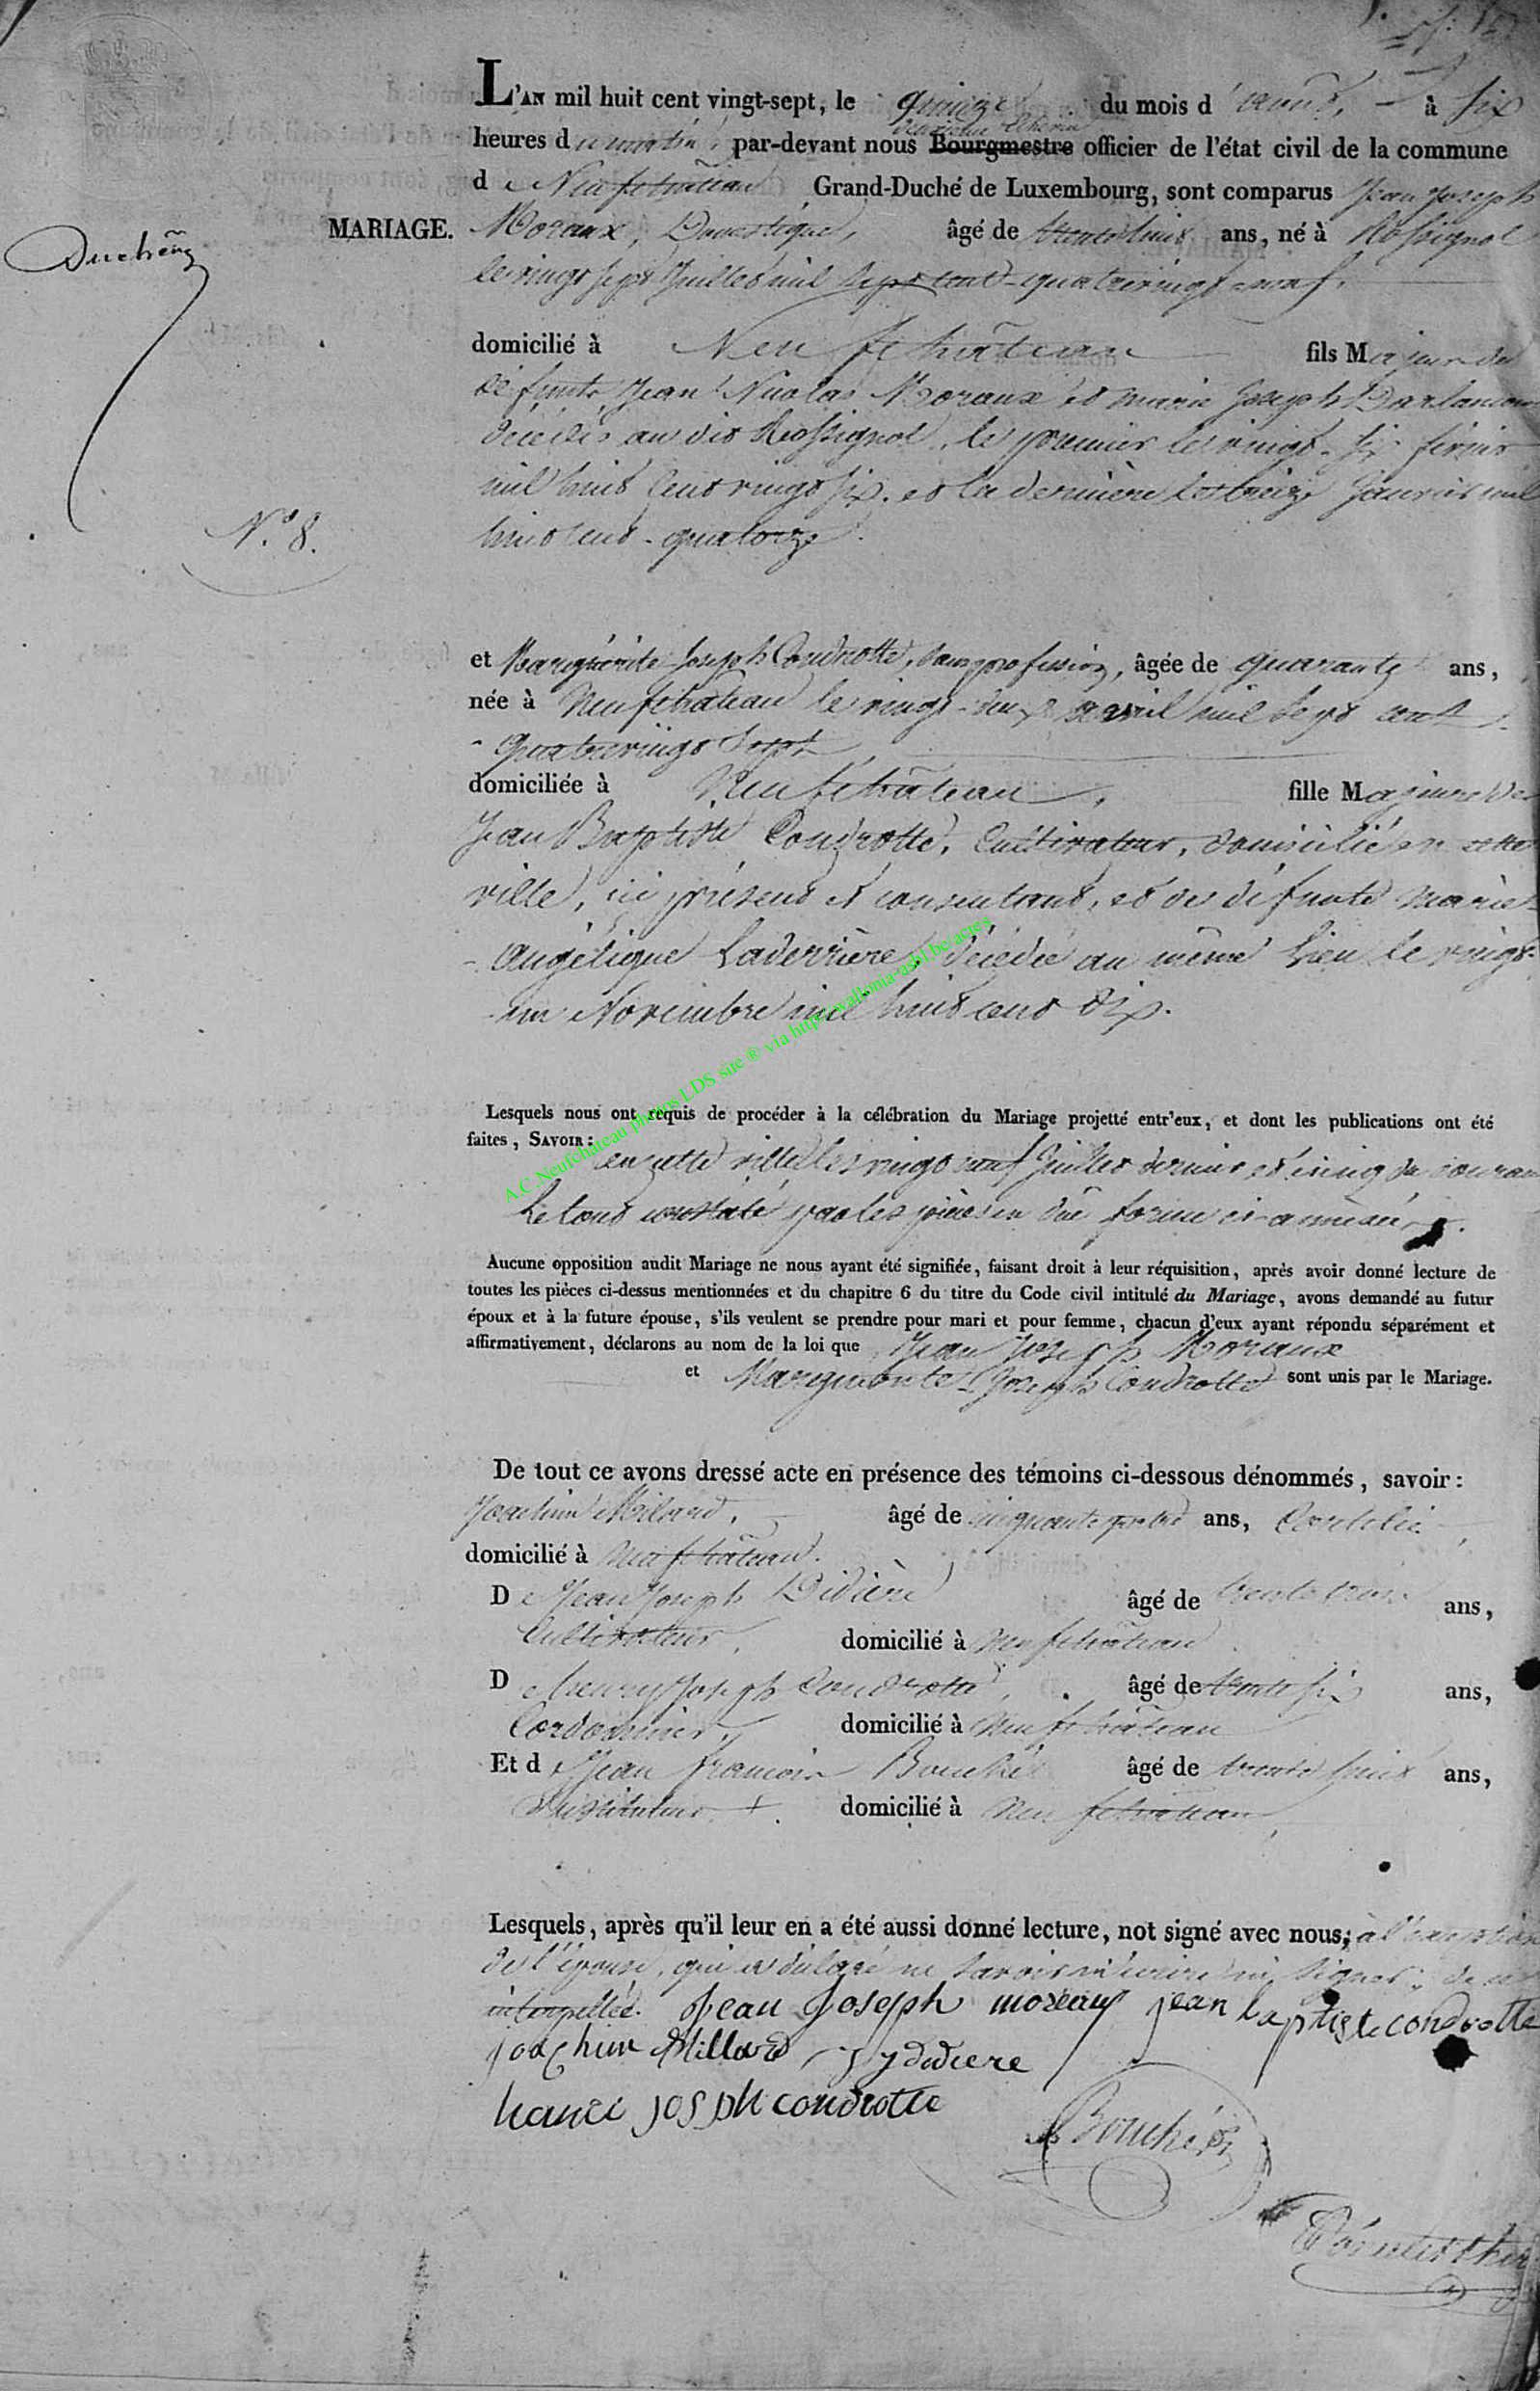 L'AN mil huit cent vingt-sept, le quinze du mois d'août, à six
heures du matin, par-devant nous Bourgmestre officier de l'état civil de la commune
de Neufchâteau Grand-Duché de Luxembourg, sont comparus Jean Joseph
MARIAGE.
Moraux, Domestique, âgé de trente huit ans, né à Rossignol
le vingt sept Juillet mil sept cent quatrevingt-neuf,
Duchêne
domicilié à Neufchâteau fils Majeur de
défunts Jean Nicolas Moraux et marie Joseph
décédés au dit Rossignol, le premier le vingt-six février
mil huit cent vingt six, et la dernière le treize Janvier mil
huit cent-quatorze.
N.° 8.
et Marguerite Joseph Condrotte, sans profession, âgée de quarante ans,
née à Neufchâteau le vingt-deux avril mil sept cent
quatrevingt sept
domiciliée à Neufchâteau, fille Majeure de
Jean Baptiste Condrotte, Cultivateur, domicilié en cette
ville, ici présent et consentant, et de défunte Marie
Angélique Laderrière, décédée au même lieu le vingt-
un Novembre mil huit cent dix.
A.C.Neufchateau photos LDS site ® via http://wallonia-asbl.be actes
Lesquels nous ont requis de procéder à la célébration du Mariage projetté entr'eux, et dont les publications ont été
faites, SAVOIR: en cette ville les vingt neuf Juillet dernier et cinq du courant
Le tout constaté par les pièces en dûe forme ci-annexées.
Aucune opposition audit Mariage ne nous ayant été signifiée, faisant droit à leur réquisition, après avoir donné lecture de
toutes les pièces ci-dessus mentionnées et du chapitre 6 du titre du Code civil intitulé du Mariage, avons demandé au futur
époux et à la future épouse, s'ils veulent se prendre pour mari et pour femme, chacun d'eux ayant répondu séparément et
affirmativement, déclarons au nom de la loi que Jean Joseph Moraux
et Marguerite Joseph Condrotte sont unis par le Mariage.
De tout ce avons dressé acte en présence des témoins ci-dessous dénommés, savoir:
Joachim Milard, âgé de cinquante quatre ans,
domicilié à Neufchâteau.
De Jean Joseph Didière âgé de trente trois ans,
Cultivateur, domicilié à Neufchâteau
De henry Joseph Condrotte, âgé de trente six ans,
Cordonnier, domicilié à Neufchâteau
Et de Jean françois Bouché âgé de trente huit ans,
Instituteur domicilié à Neufchâteau,
Lesquels, après qu'il leur en a été aussi donné lecture, not signé avec nous, à l'exception
de l'épouse, qui a déclaré ne savoir ni écrire ni signer, de ce
interpellée. Jean Joseph moraux jean baptiste condrotte
joachim Millard j j didiere
hanri joseph condrotte
Bouché